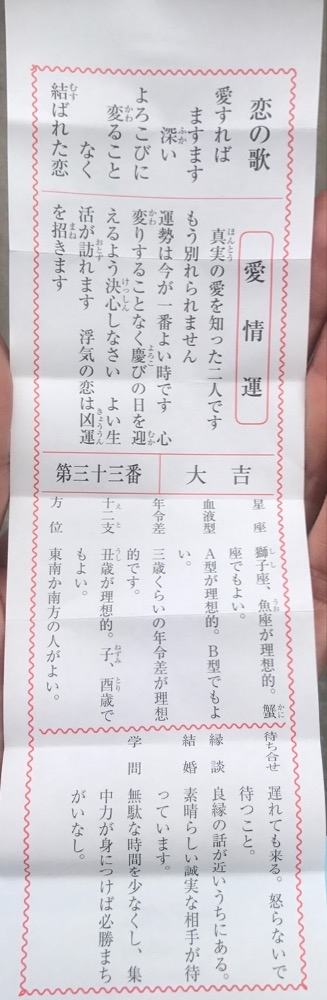 恋の歌
愛すれば
ますます
深い
よろこびに
変ること
なく
結ばれた恋
愛情運
真実の愛を知った二人です
もう別れられません
運勢は今が一番よい時です　心
変りすることなく慶びの日を迎
えるよう決心しなさい　よい生
活が訪れます　浮気の恋は凶運
を招きます
大吉
第三十三番
星座　獅子座、魚座が理想的。蟹
座でもよい。
血液型　A型が理想的。B型でもよ
い。
年令差　三歳くらいの年令差が理想
的です。
十二支　丑歳が理想的。子、酉歳で
もよい。
方位　東南か南方の人がよい。
待ち合せ　遅れても来る。怒らないで
待つこと。
縁談　良縁の話が近いうちにある。
結婚　素晴らしい誠実な相手が待
っています。
学問　無駄な時間を少なくし、集
中力が身につけば必勝まち
がいなし。